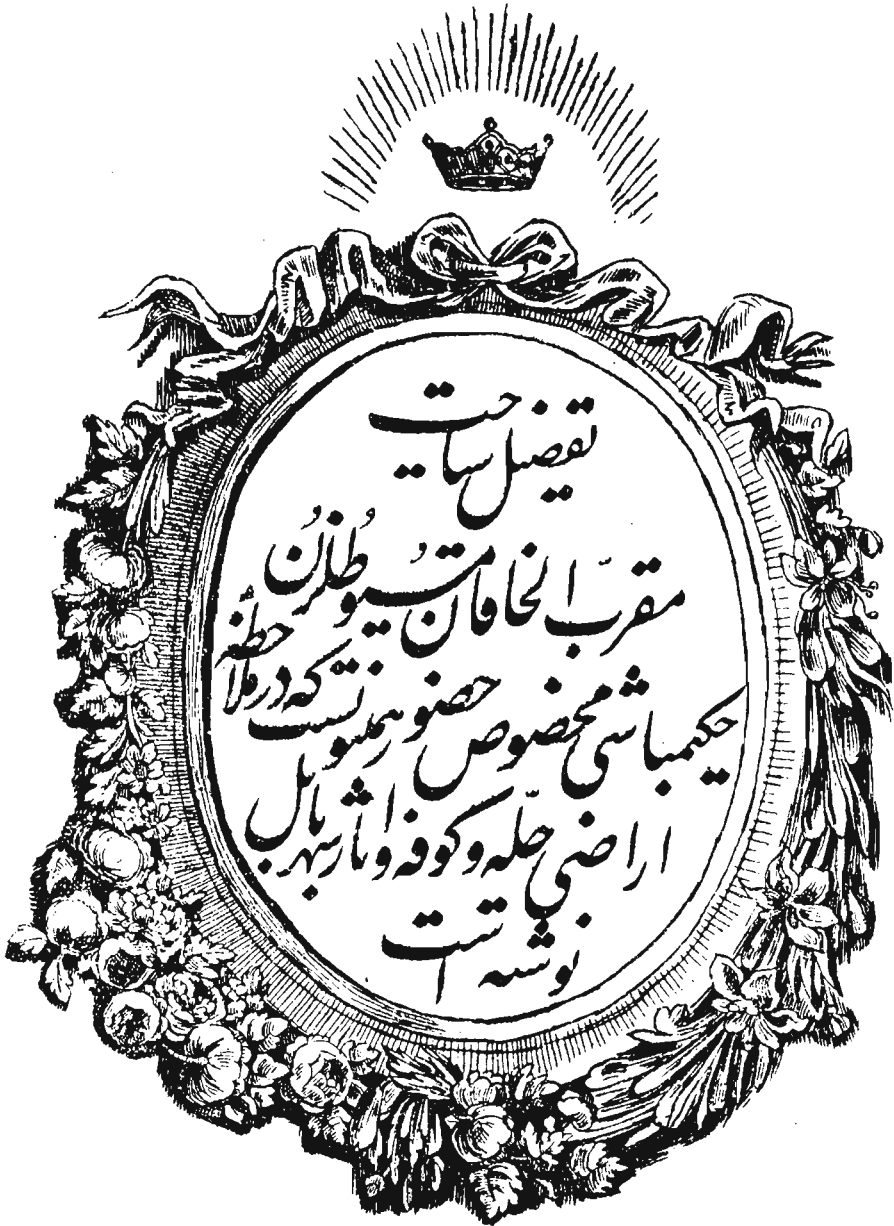 تفضیل سیاحت
مقرّب الخاقان مسیو طُلزُن
حکیمباشی مخصوص حضور همیونست که در ملاحظهٔ
اراضی حلّه و کوفه و اثار شهر بابل
نوشته است